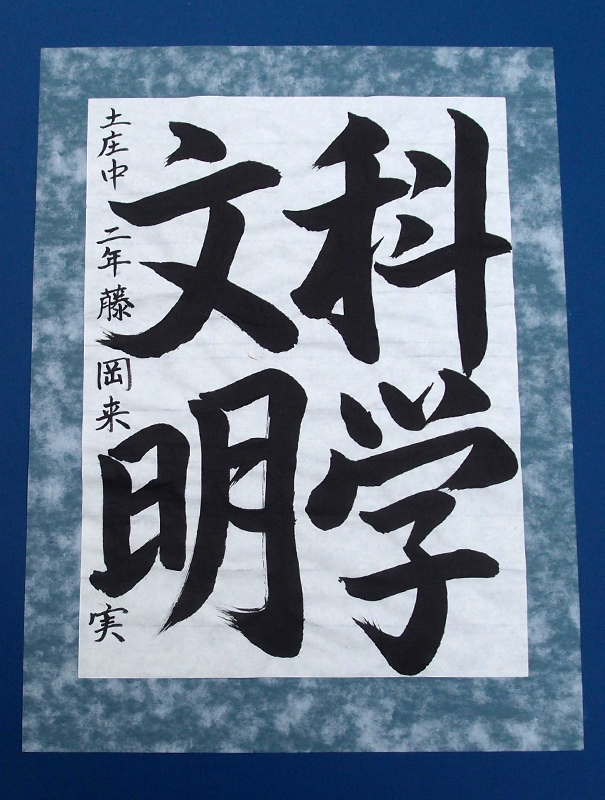 科学
文明
土庄中 二年 藤岡来実